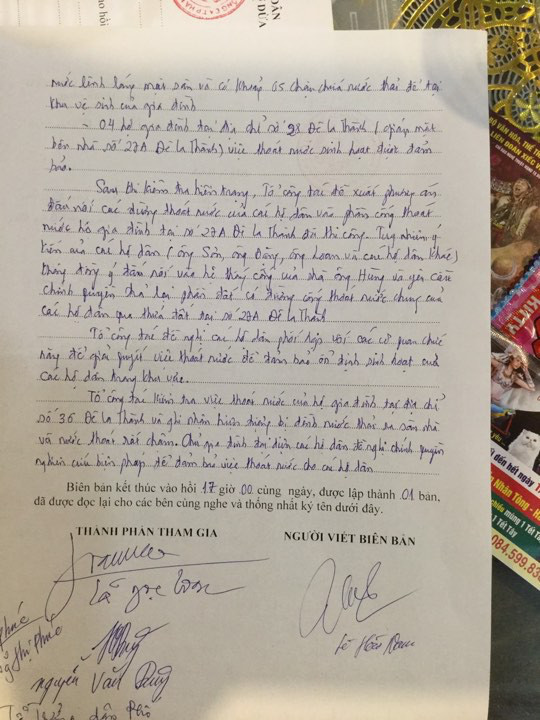 nước lênh láng mặt sân và có khoảng 05 chậu chứa nước thải để tại
khu vệ sinh của gia đình
- 04 hộ gia đình tại địa chỉ số 28 Đê La Thành (giáp mặt
bên nhà số 27A Đê La Thành) việc thoát nước sinh hoạt được đảm
bảo.
Sau khi kiểm tra hiện trạng, Tổ công tác đề xuất phương án
đấu nối các đường thoát nước của các hộ dân vào phần cống thoát
nước hộ gia đình tại số 27A Đê La Thành đã thi công. Tuy nhiên ý
kiến của các hộ dân (ông Sơn, ông Dũng, ông Loan và các hộ dân khác)
không đồng ý đấu nối vào hệ thống cống của nhà ông Hùng và yêu cầu
chính quyền trả lại phần đất có đường cống thoát nước chung của
các hộ dân qua thửa đất tại số 27A Đê La Thành
Tổ công tác đề nghị các hộ dân phối hợp với các cơ quan chức
năng để giải quyết việc thoát nước để đảm bảo ổn định sinh hoạt của
các hộ dân trong khu vực.
Tổ công tác kiểm tra việc thoát nước của hộ gia đình tại địa chỉ
số 36 Đê La Thành và ghi nhận hiện tượng bị đọng nước thải ra sân nhà
và nước thoát rất chậm. Chủ gia đình đại diện các hộ dân đề nghị chính quyền
nghiên cứu biện pháp để đảm bảo việc thoát nước cho các hộ dân
Biên bản kết thúc vào hồi 17 giờ 00 cùng ngày, được lập thành 01 bản,
đã được đọc lại cho các bên cùng nghe và thống nhất ký tên dưới đây.
THÀNH PHẦN THAM GIA
NGƯỜI VIẾT BIÊN BẢN
Nguyễn Văn Dũng
084.599.83